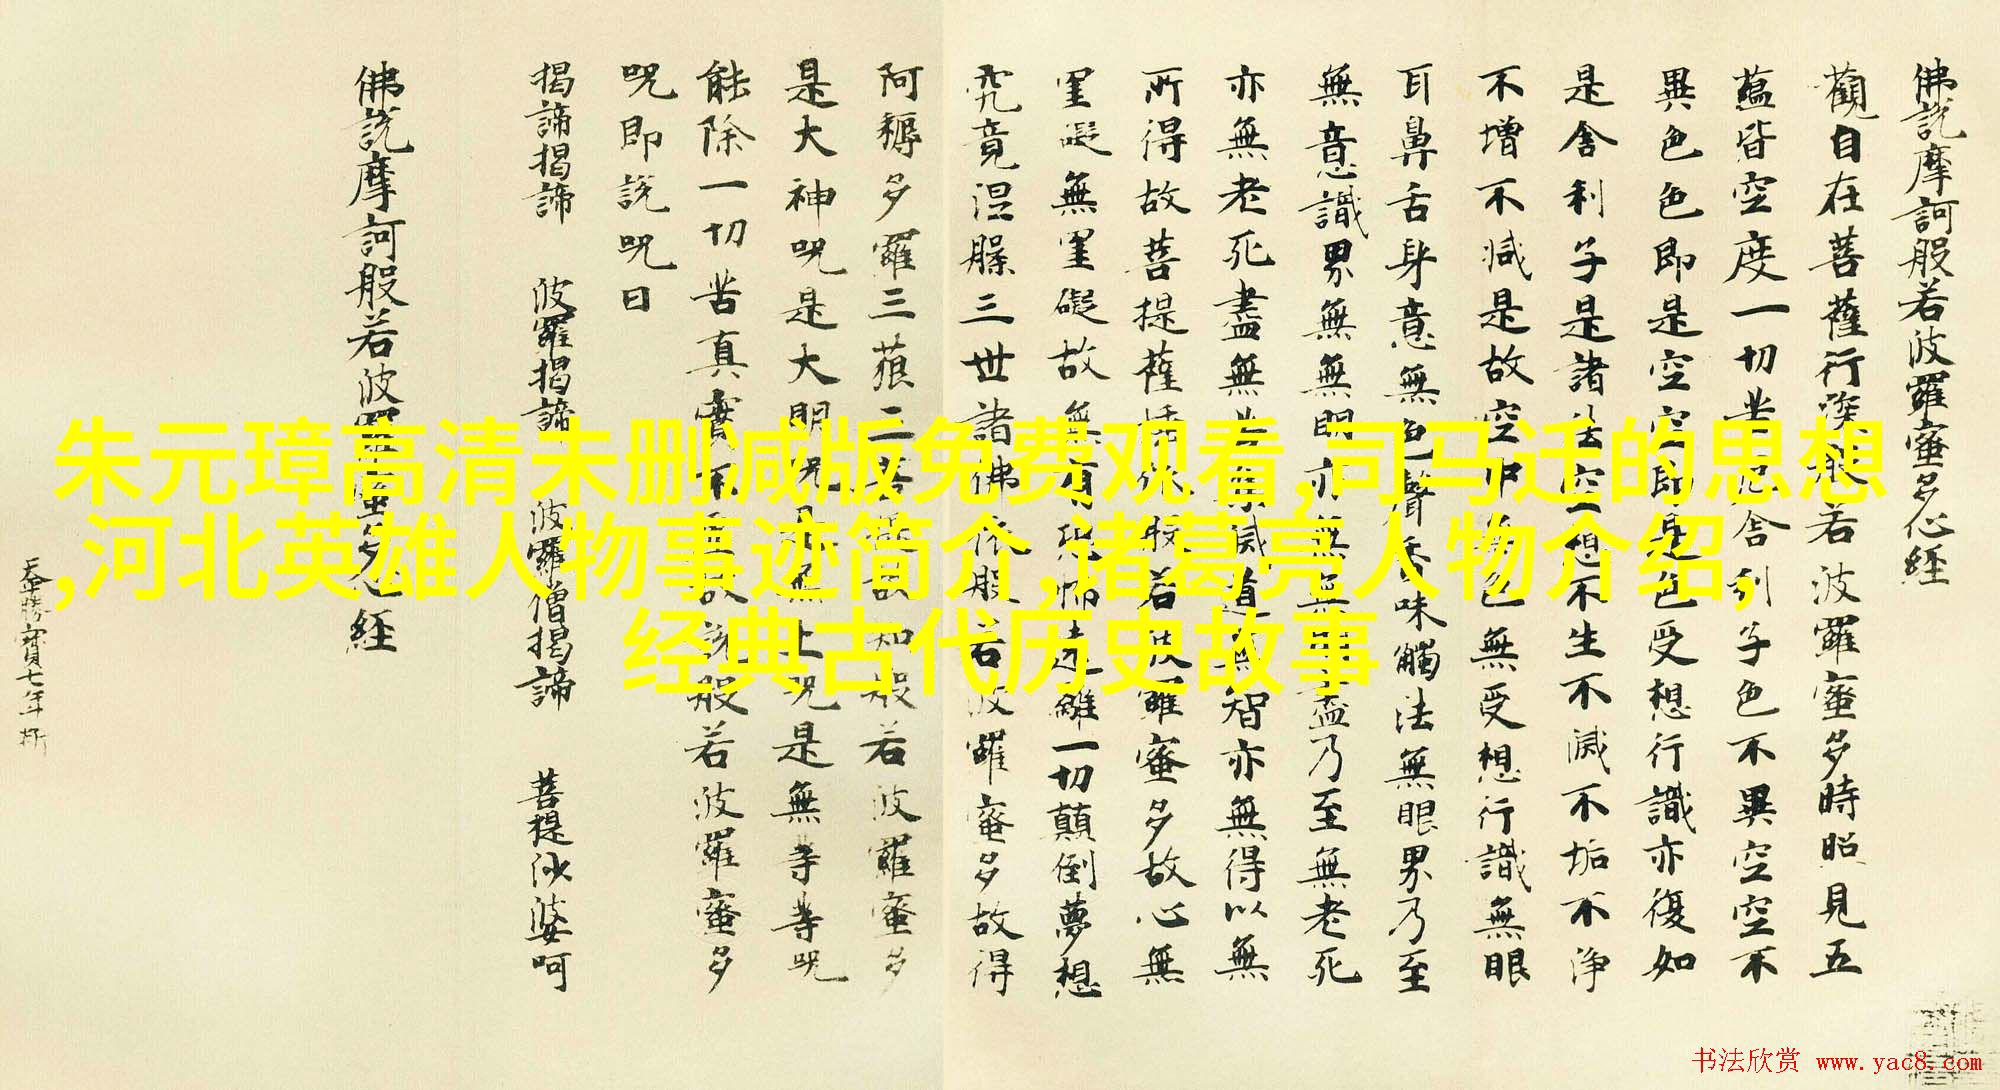 佛說摩訶般若波羅蜜多心經
觀自在菩薩行深般若波羅蜜多時照見五
蘊皆空度一切苦厄舍利子色不異空空不
異色色即是空空即是色受想行識亦復如
是舍利子是諸法空相不生不滅不垢不淨
不增不減是故空中無色無受想行識無眼
耳鼻舌身意無色聲香味觸法無眼界乃至
無意識界無無明亦無無明盡乃至無老死
亦無老死盡無苦集滅道無智亦無得以無
所得故菩提薩埵依般若波羅蜜多故心無
罣礙無罣礙故無有恐怖遠離一切顛倒夢想
究竟涅槃三世諸佛依般若波羅蜜多故得
阿耨多羅三藐三菩提故知般若波羅蜜多
是大神咒是大明咒是無上咒是無等等咒
能除一切苦真實不虛故說般若波羅蜜多
咒即說咒曰
揭諦揭諦 波羅揭諦 波羅僧揭諦 菩提沙婆呵
佛說摩訶般若波羅蜜多心經
天平勝寶七年
朱元璋高清未删减版免费观看,司马迁的思想
,河北英雄人物事迹简介,诸葛亮人物介绍,
经典古代历史故事
书法欣赏 www.yac8.com